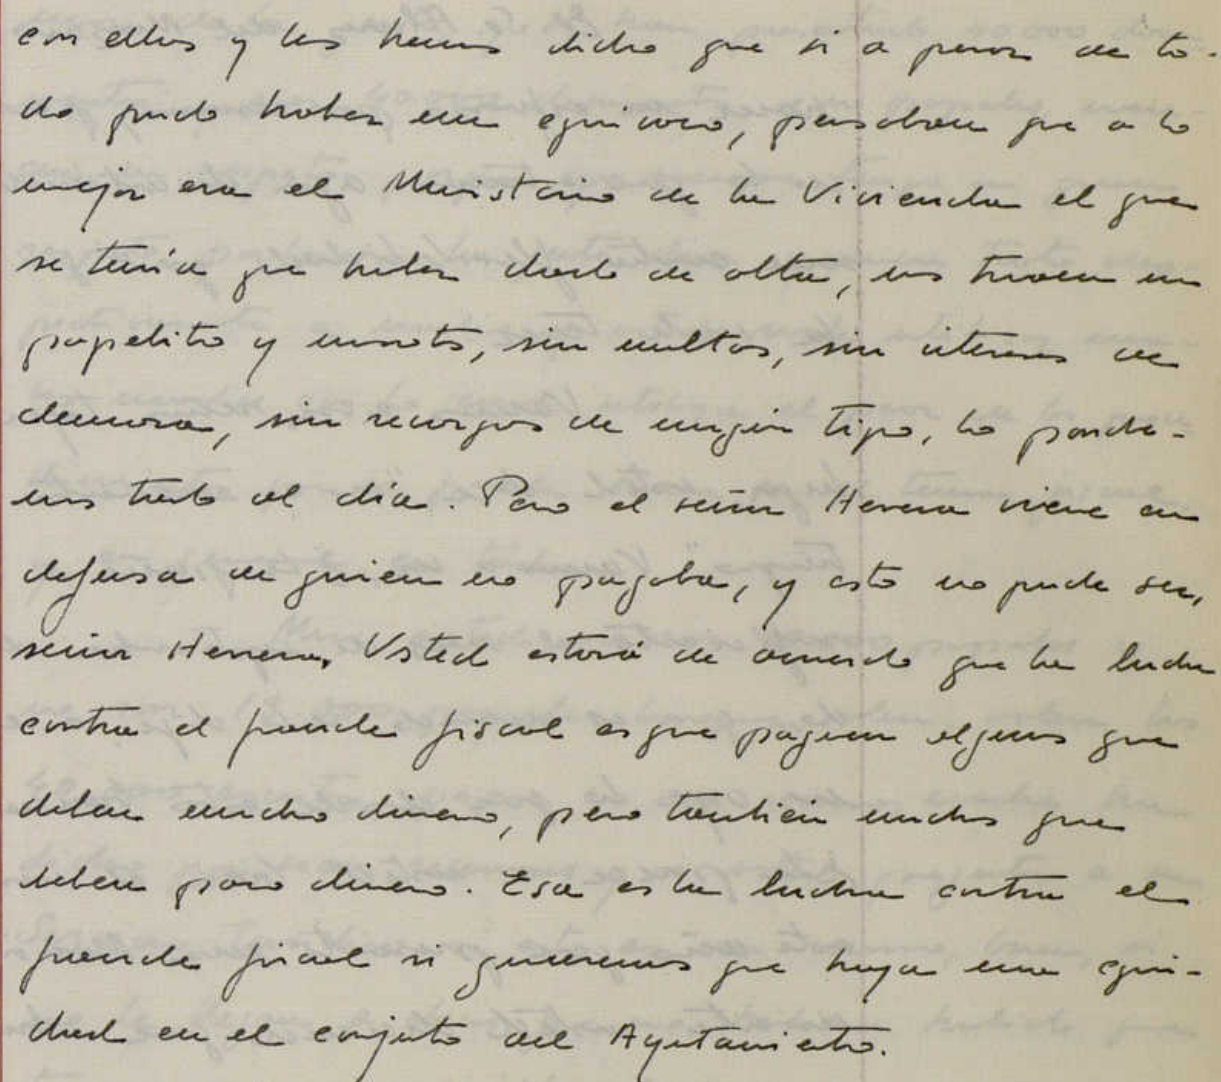 con ellos y les hemos dicho que si a pesar de to-
do pudo haber un equivoco, pensaban que a lo
mejor era el Ministerio de la Vivienda el que
se tenía que haber dado de alta, nos traen un
papelito y nosotros, sin multas, sin intereses de
demora, sin recargos de ningún tipo, lo ponda-
mos todo al día. Pero el señor Herrera viene en
defensa de quien no pagaba, y esto no puede ser,
señor Herrera, Usted estará de acuerdo que la lucha
contra el fraude fiscal es que paguen algunos que
deben mucho dinero, pero también muchos que
deben poco dinero. Esa es la lucha contra el
fraude fiscal si queremos que haya una equi-
dad en el conjunto del Ayuntamiento.